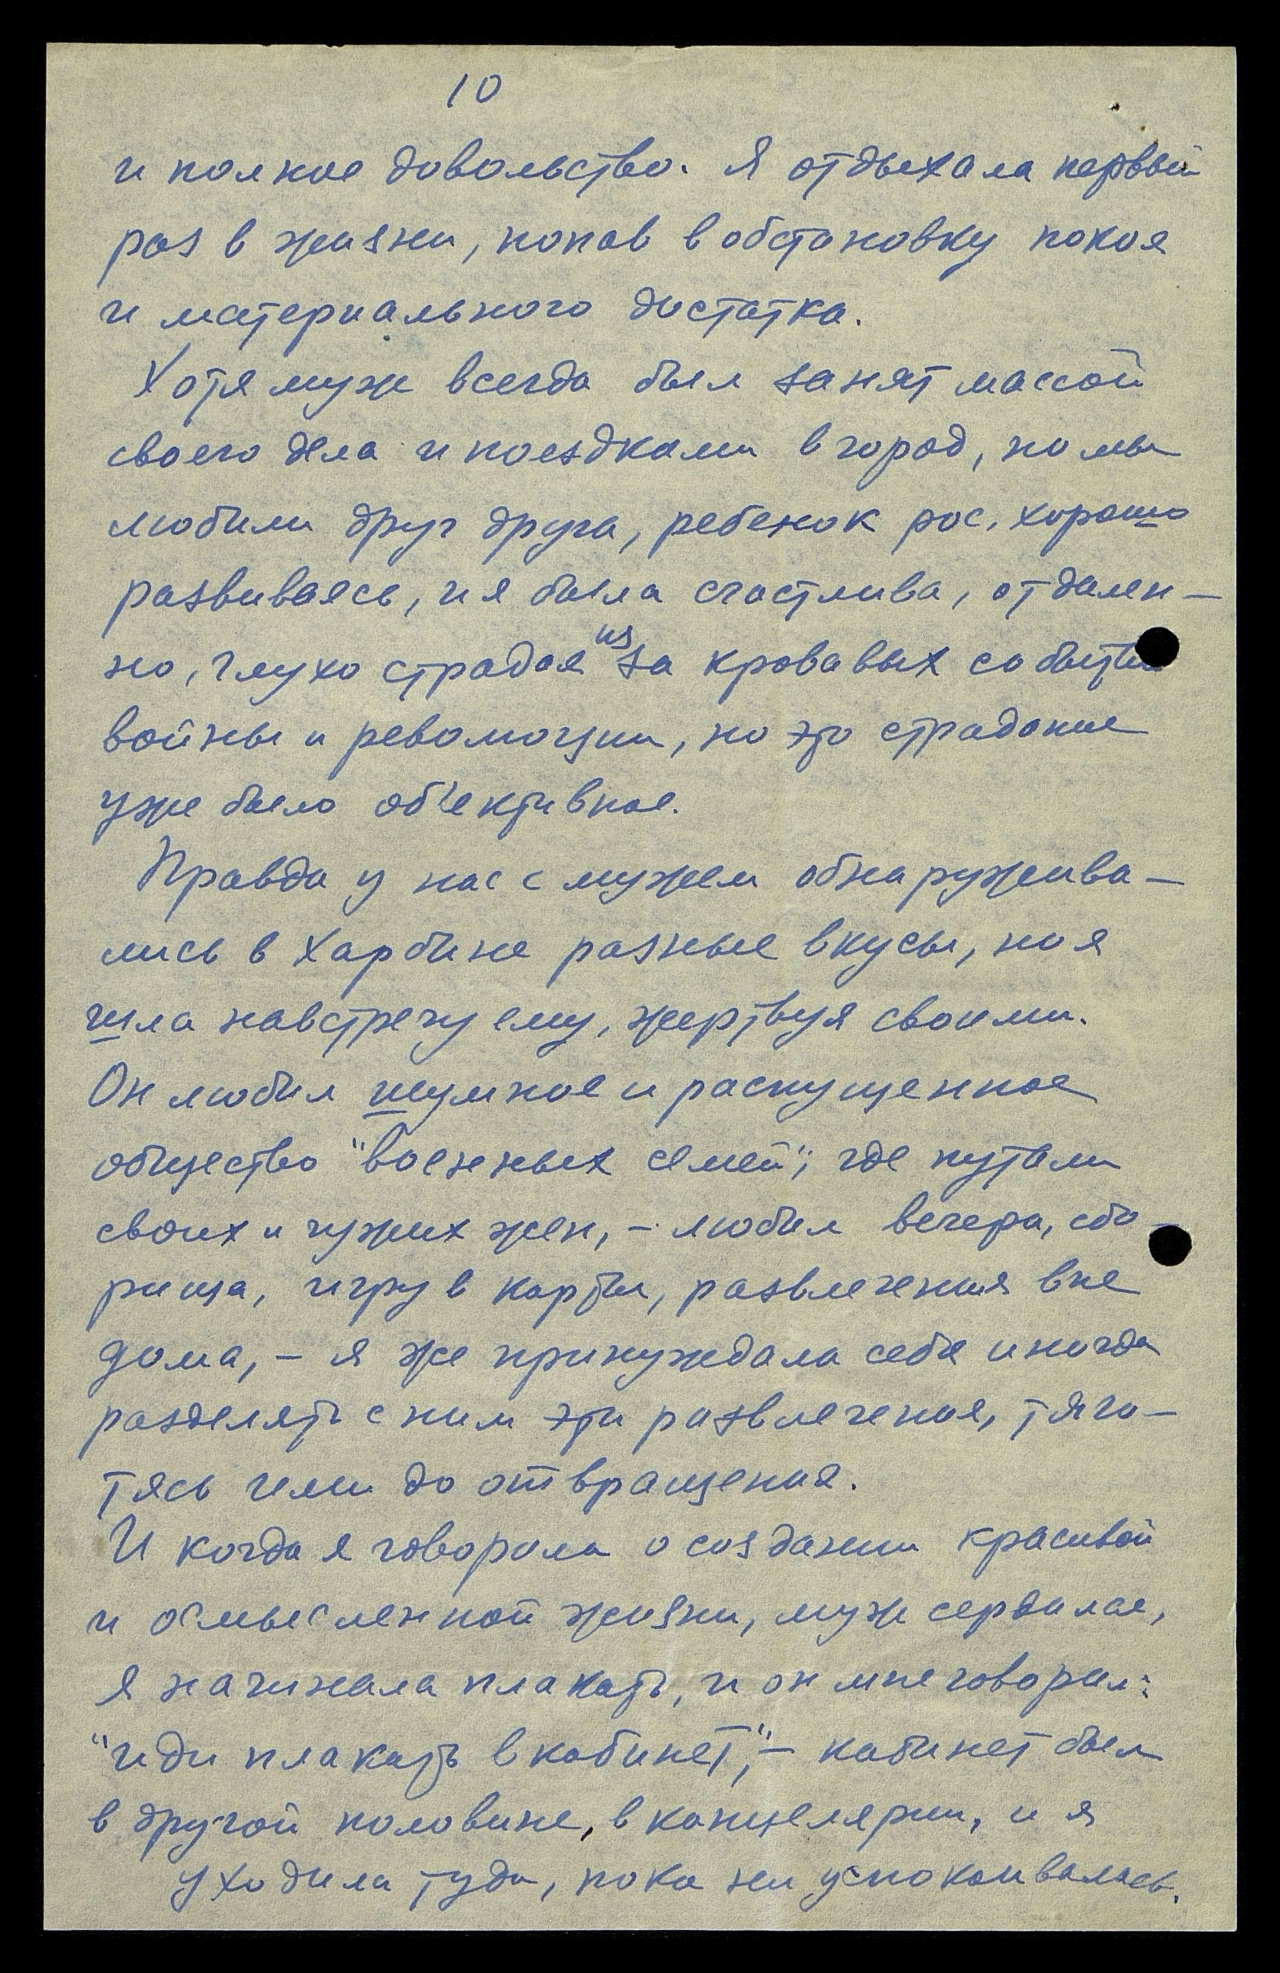 10
и полное довольство. Я отдыхала первый
раз в жизни, попав в обстановку покоя
и материального достатка.
Хотя муж всегда был занят массой
своего дела и поездками в город, но мы
любили друг друга, ребенок рос, хорошо
развиваясь, и я была счастлива, отдален-
но, глухо страдая из за кровавых событий
войны и революции, но это страдание
уже было об'ективное.
Правда у нас с мужем обнаружива-
лись в Харбине разные вкусы, но я
шла навстречу ему, жертвуя своими.
Он любил шумное и распущенное
общество "военных семей", где путали
своих и чужих жен, - любил вечера, сбо-
рища, игру в карты, развлечения вне
дома, - я же принуждала себя иногда
разделять с ним эти развлечения, тяго-
тясь ими до отвращения.
И когда я говорила о создании красивой
и осмысленной жизни, муж сердился,
я начинала плакать, и он мне говорил:
"иди плакать в кабинет", - кабинет был
в другой половине, в канцелярии, и я
уходила туда, пока не успокаивалась.